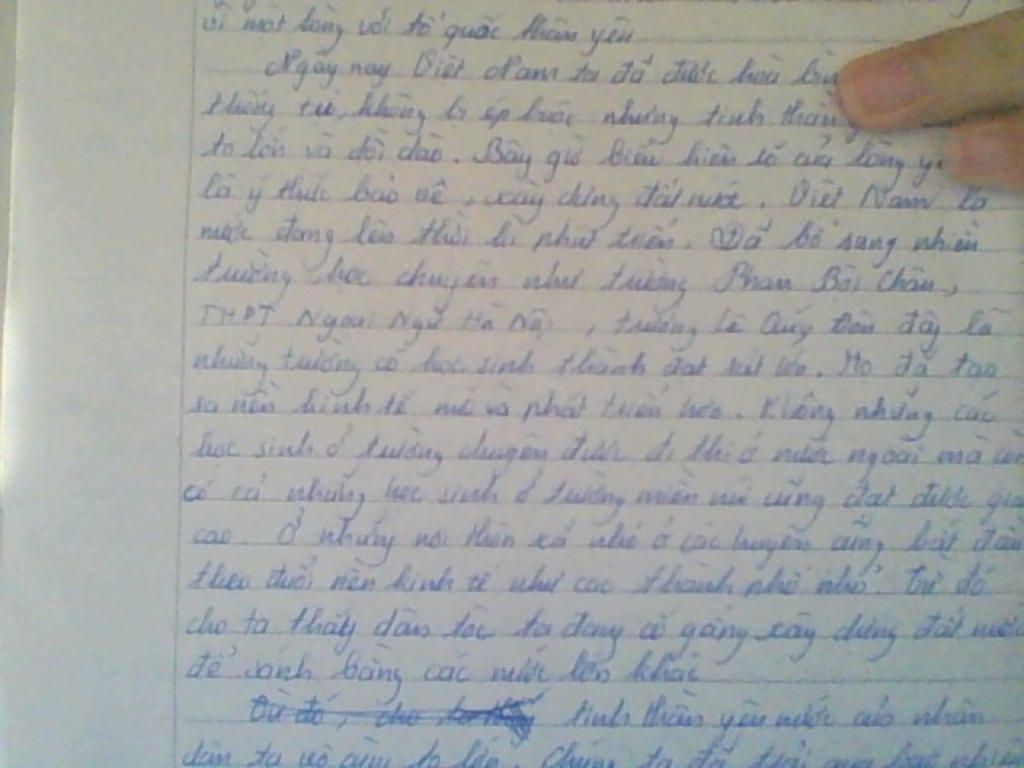 vì một lòng với tổ quốc thân yêu
Ngày nay Việt Nam ta đã được hoà bìn
thống trị, không bị ép buộc nhưng tinh thần
to lớn và dồi dào. Bây giờ biểu hiện rõ của lòng yê
là ý thức bảo vệ, xây dựng đất nước. Việt Nam là
nước đang lên thời kì phát triển. Đã bổ sung nhiên
trường học chuyên như trường Phan Bội Châu,
THPT Ngoại Ngữ Hà Nội, trường Lê Quý Đôn đây là
những trường có học sinh thành đạt rất lớn. Họ đã tạo
ra nền kinh tế mới và phát triển hơn. Không những các
học sinh ở trường chuyên được đi thi ở nước ngoài mà còn
có cả những học sinh ở trường miền núi cũng đạt được giả
cao. Ở những nơi thôn xã nhỏ ở các huyện cũng bắt đầu
theo đuổi nền kinh tế như các thành phố nhỏ. Từ đó
cho ta thấy dân tộc ta đang cố gắng xây dựng đất nước
để sánh bằng các nước lớn khác
Từ đó, cho ta thấy tinh thần yêu nước của nhân
dân ta vô cùng to lớn. Chúng ta đã trải qua bao nhiêu